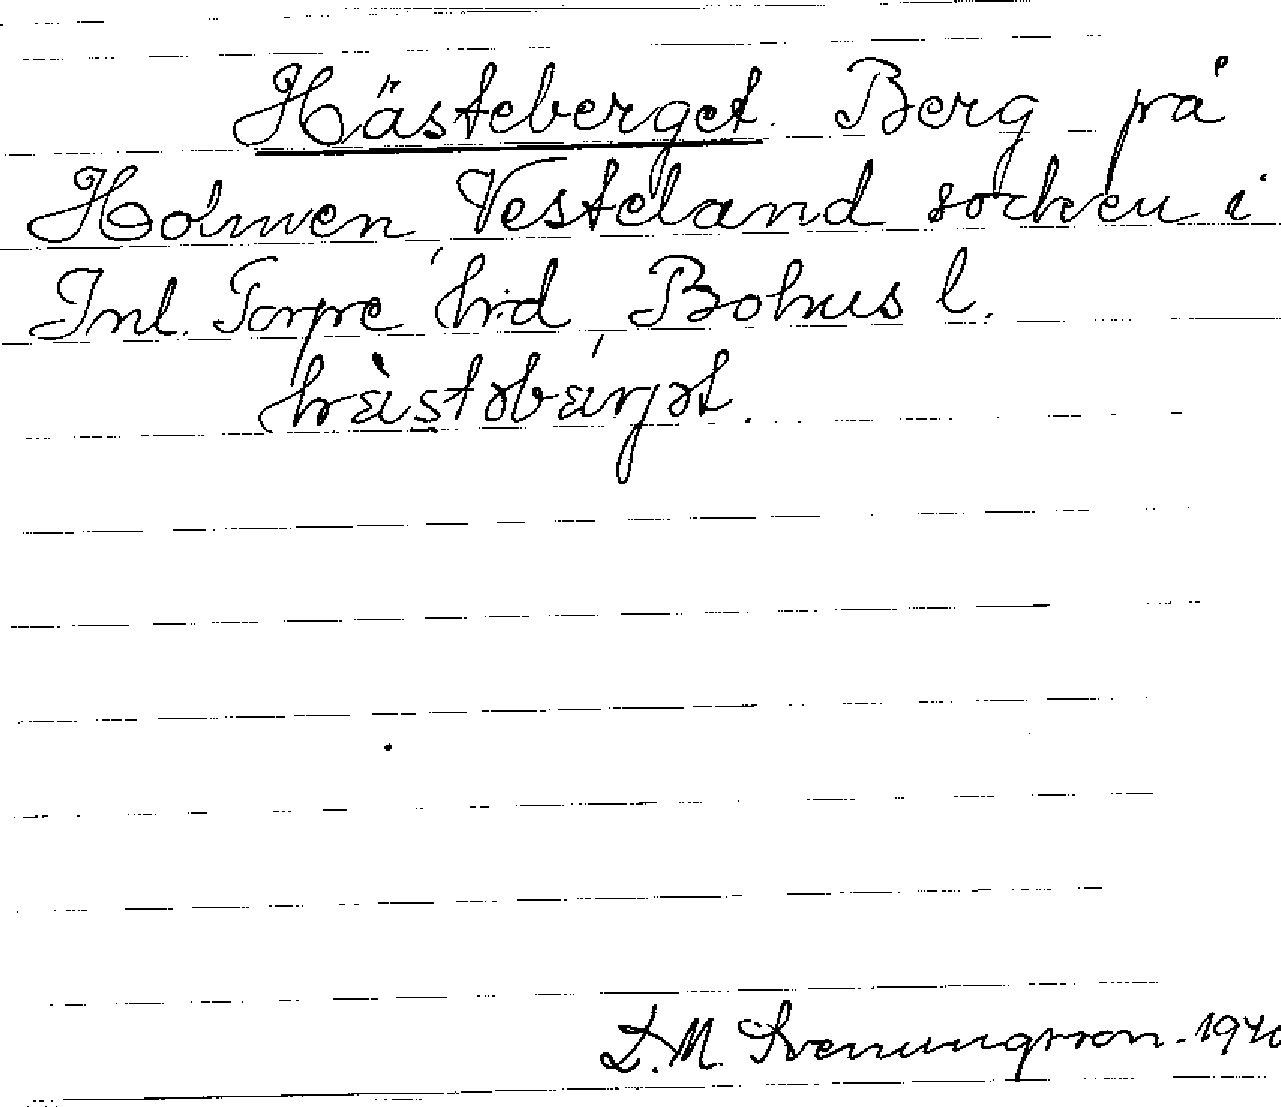 Hästeberget. Berg på
Holmen, Vesteland socken i
Inl. Torpe hrd, Bohus l.
hὲstəbærjət.
L. M. Svenungsson. 1940